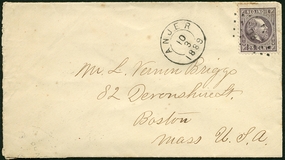 ANJER
10
3
1889
Mr L. Vernon Briggs
82 Devonshire St.
Boston
Mass U.S.A.